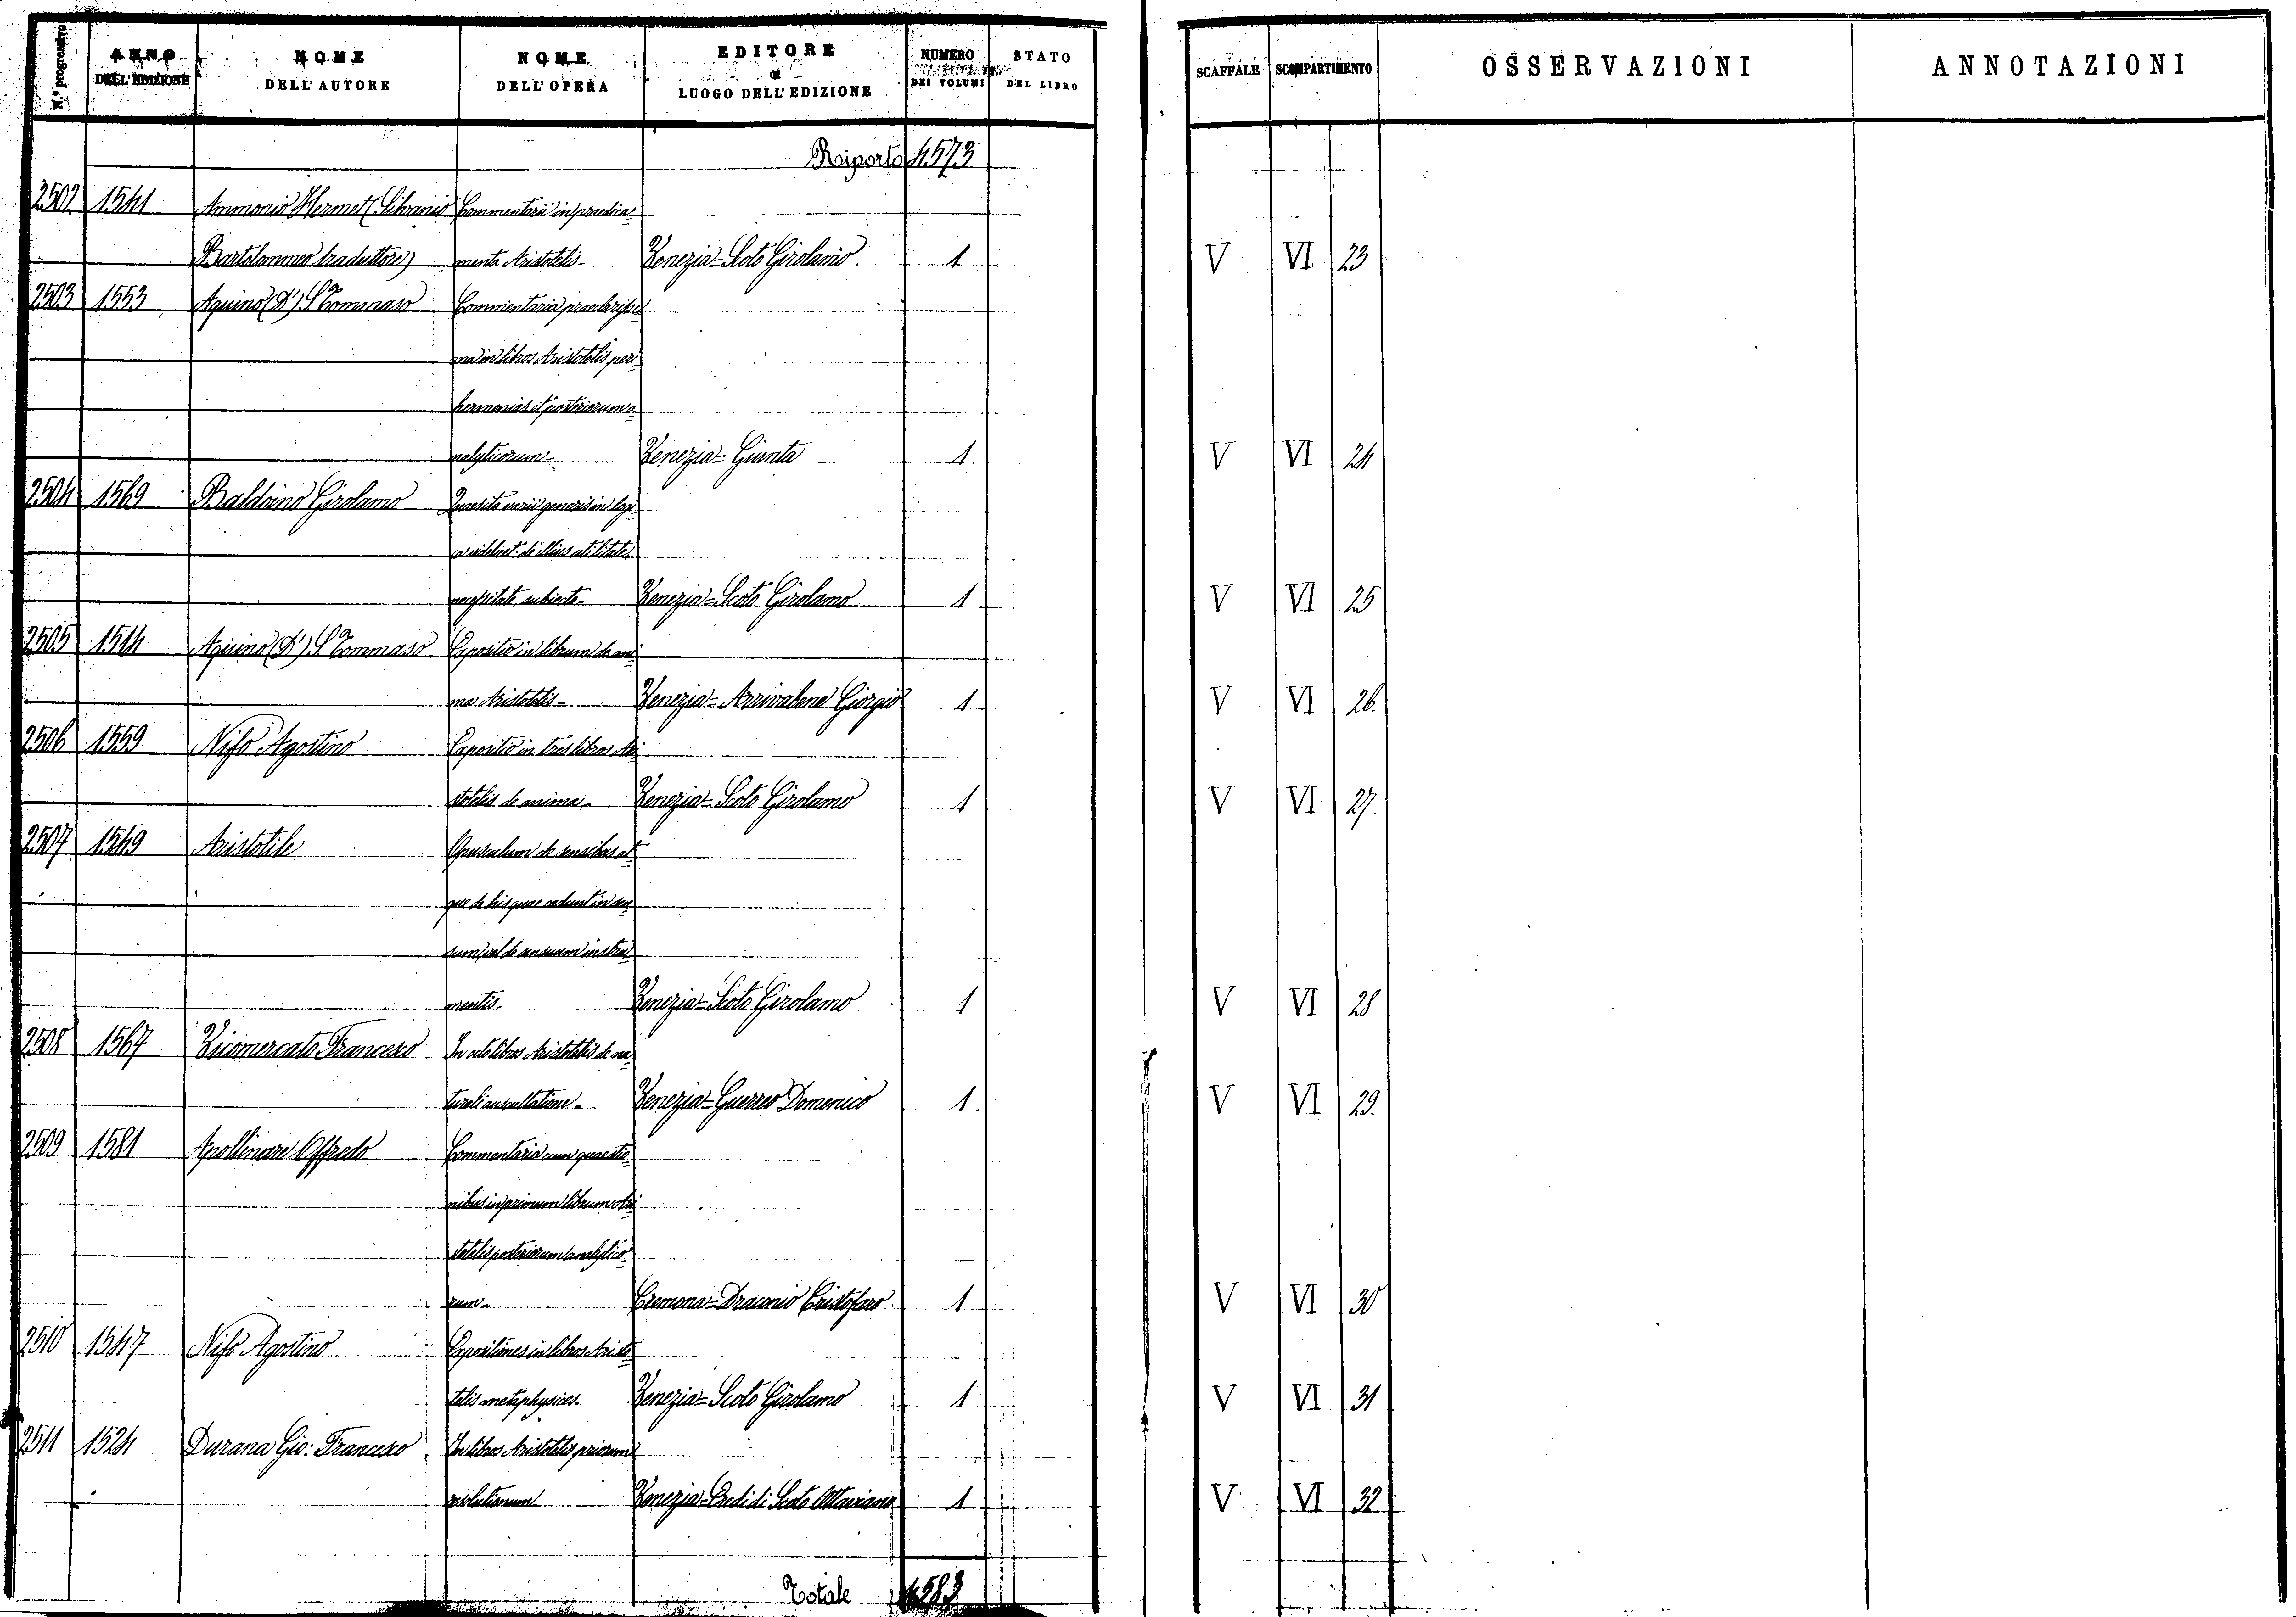 N.° progressivo | ANNO DELL'EDIZIONE | NOME DELL'AUTORE | NOME DELL'OPERA | EDITORE e LUOGO DELL'EDIZIONE | NUMERO DEI VOLUMI | STATO DEL LIBRO | SCAFFALE | SCOMPARTIMENTO | OSSERVAZIONI | ANNOTAZIONI
Riporto 4573
2502 1541 Ammonio Hermet (Silvanio Commentarii in praedica-
Bartolommeo traduttore) menta Aristotelis - Venezia - Scoto Girolamo 1 V VI 23
2503 1553 Aquino (D') S. Tommaso Commentaria praeclarissi-
ma in libros Aristotelis peri-
hermenias et posteriorum a-
nalyticorum - Venezia - Giunta 1 V VI 24
2504 1569 Baldoino Girolamo Quaesita varii generis in logi-
ca videlicet. de illius utilitate,
necessitate, subiecto - Venezia - Scoto Girolamo 1 V VI 25
2505 1514 Aquino (D') S. Tommaso Expositio in librum de ani-
ma Aristotelis - Venezia - Arrivabene Giorgio 1 V VI 26
2506 1559 Nifo Agostino Expositio in tres libros Ari-
stotelis de anima - Venezia - Scoto Girolamo 1 V VI 27
2507 1549 Aristotile Opusculum de sensibus at-
que de his quae cadunt in sen-
sum, vel de sensuum instru-
mentis - Venezia - Scoto Girolamo 1 V VI 28
2508 1567 Vicomercato Francesco In octo libros Aristotelis de na-
turali auscultatione - Venezia - Guerreo Domenico 1 V VI 29
2509 1581 Apollinare Offredo Commentaria cum quaestio-
nibus in primum librum Ari-
stotelis posteriorum analytico-
rum - Cremona - Draconio Cristofaro 1 V VI 30
2510 1547 Nifo Agostino Expositiones in libros Aristo-
telis metaphysices - Venezia - Scoto Girolamo 1 V VI 31
2511 1524 Durana Gio: Francesco In libros Aristotelis priorum
resolutionum Venezia - Eredi di Scoto Ottaviano 1 V VI 32
Totale 4583